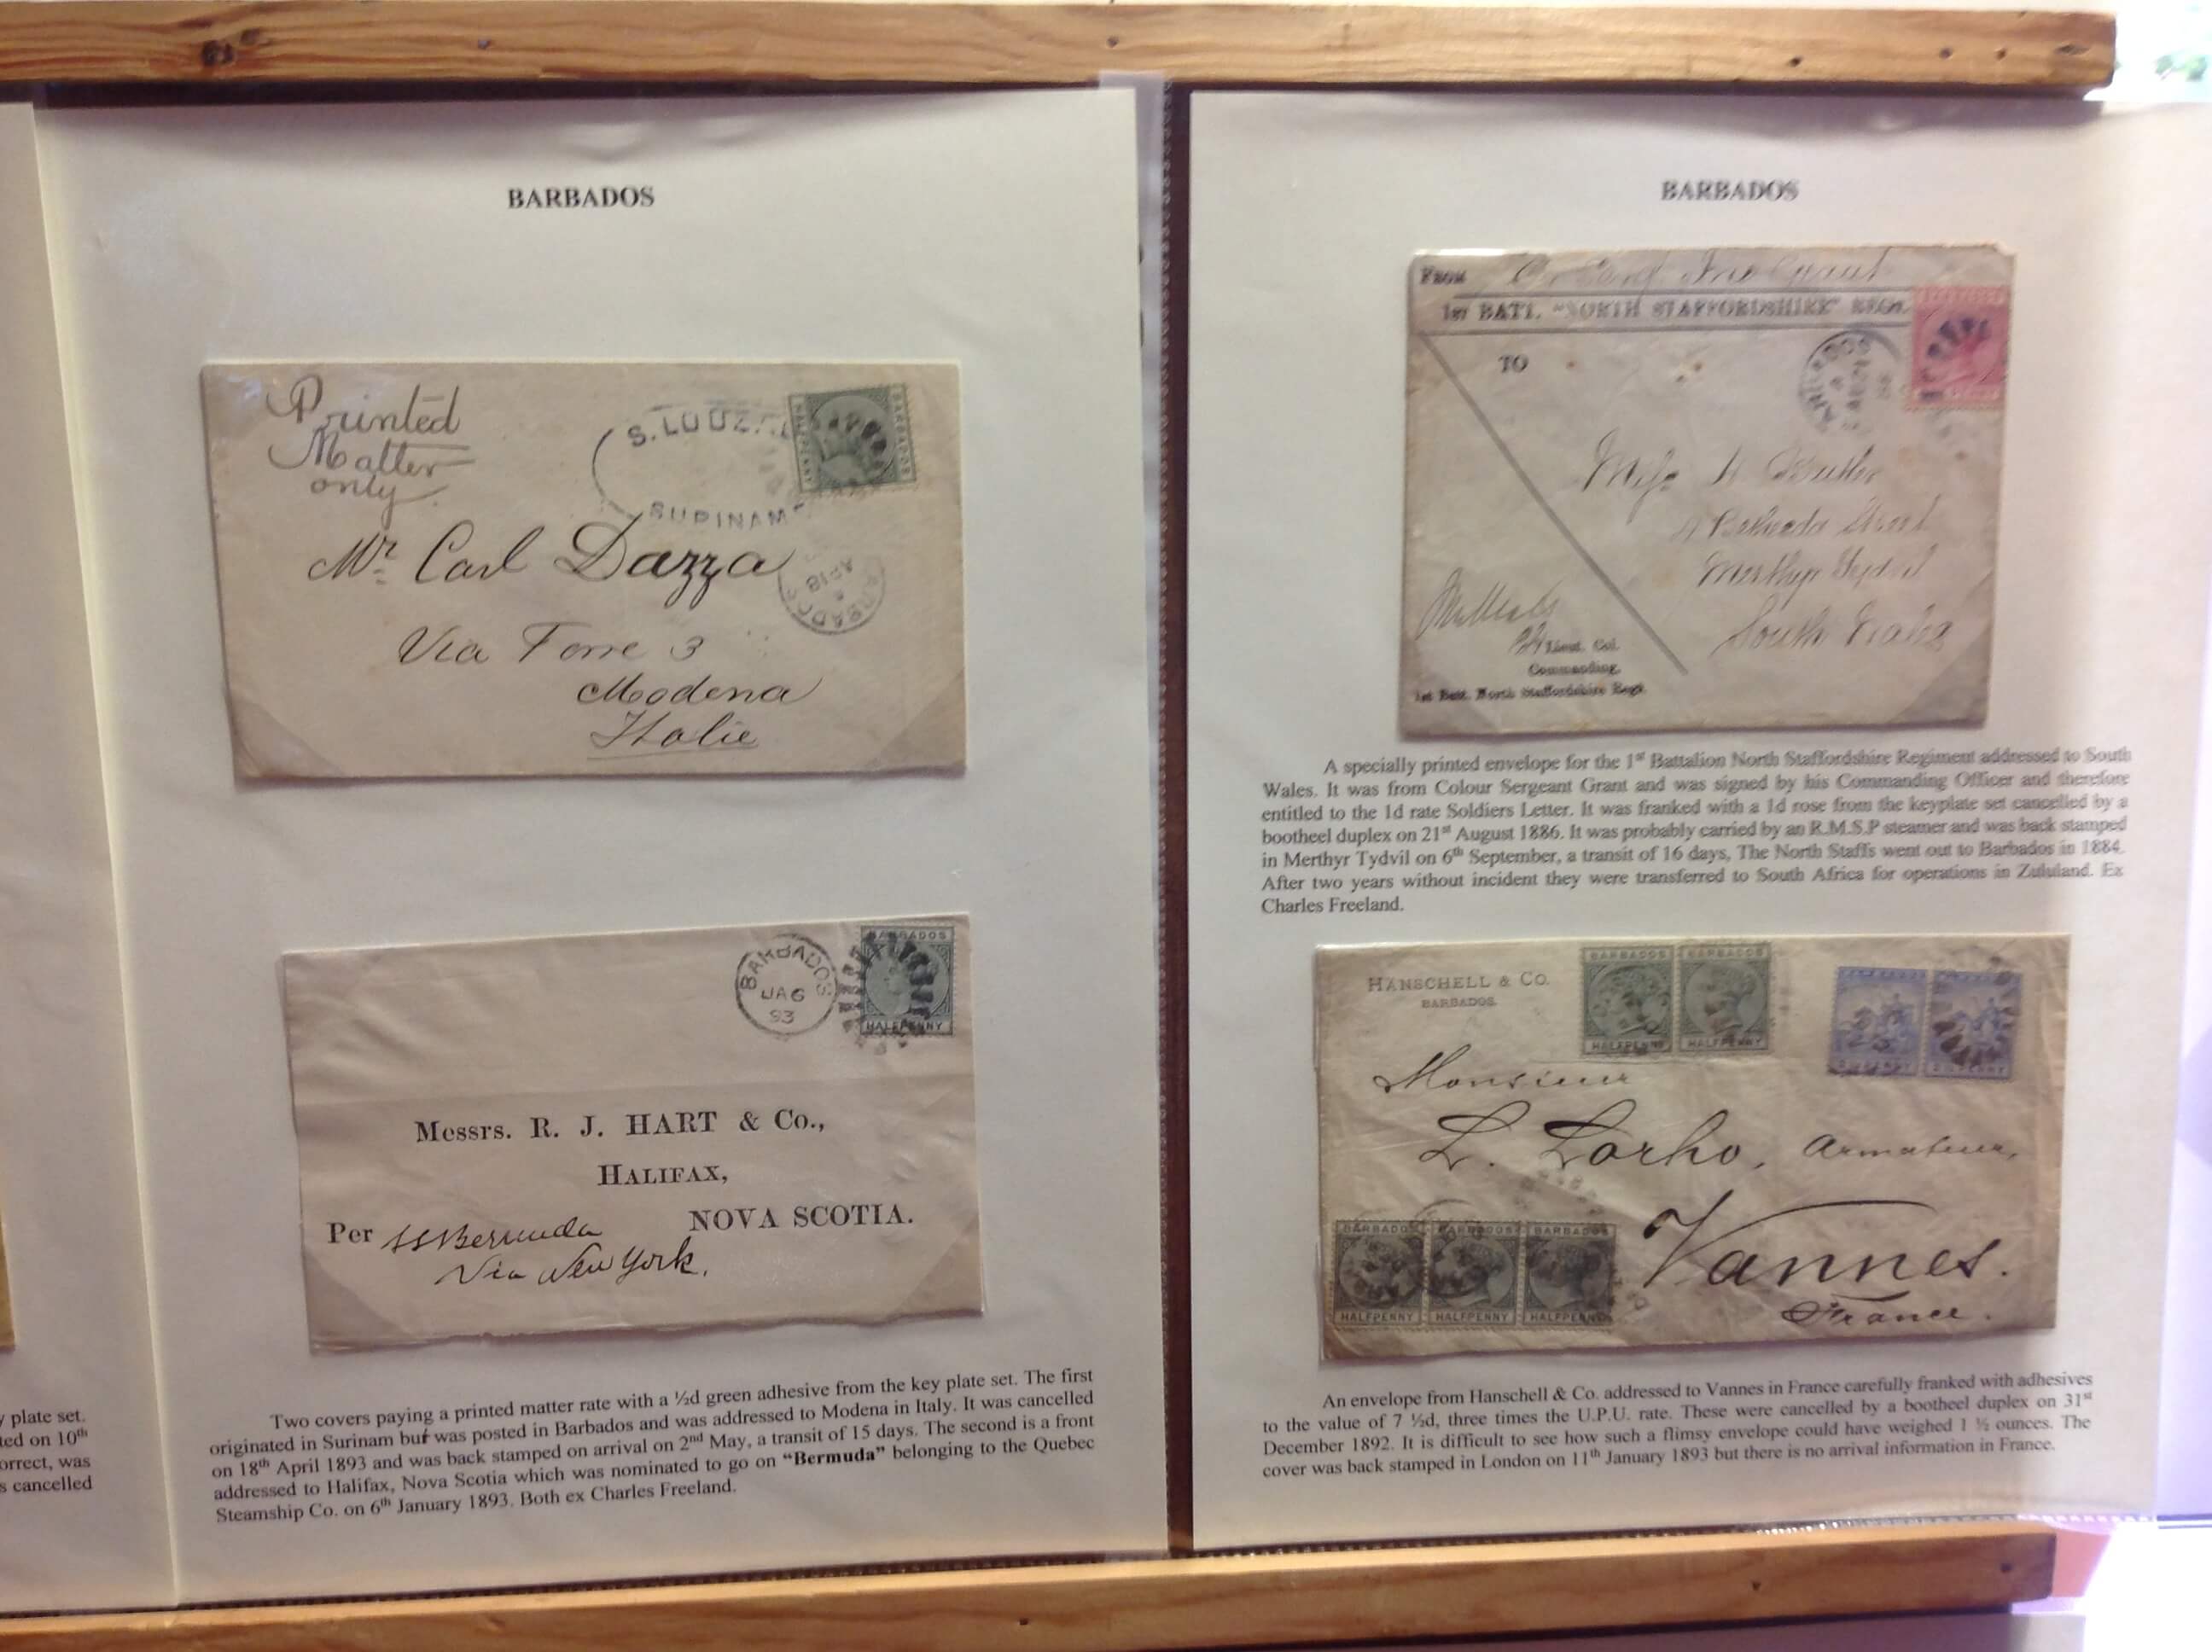 y plate set.
ted on 10th
orrect, was
s cancelled
BARBADOS
Printed
Matter
only.
S. LOUZA
SURINAME
HALFPENNY
BARBADOS
Mr. Carl Dazza
BARBADOS
AP 18
Via Torre 3
Modena
Italie
BARBADOS
JA 6
93
BARBADOS
HALFPENNY
Messrs. R. J. HART & Co.,
HALIFAX,
NOVA SCOTIA.
Per SS Bermuda
Via New York.
Two covers paying a printed matter rate with a ½d green adhesive from the key plate set. The first
originated in Surinam but was posted in Barbados and was addressed to Modena in Italy. It was cancelled
on 18th April 1893 and was back stamped on arrival on 2nd May, a transit of 15 days. The second is a front
addressed to Halifax, Nova Scotia which was nominated to go on “Bermuda” belonging to the Quebec
Steamship Co. on 6th January 1893. Both ex Charles Freeland.
BARBADOS
FROM
1ST BATT. "NORTH STAFFORDSHIRE" REGT.
TO
BARBADOS
Miss
Street
Merthyr Tydvil
South Wales
Lieut. Col.
Commanding,
1st Batt. North Staffordshire Regt.
A specially printed envelope for the 1st Battalion North Staffordshire Regiment addressed to South
Wales. It was from Colour Sergeant Grant and was signed by his Commanding Officer and therefore
entitled to the 1d rate Soldiers Letter. It was franked with a 1d rose from the keyplate set cancelled by a
bootheel duplex on 21st August 1886. It was probably carried by an R.M.S.P steamer and was back stamped
in Merthyr Tydvil on 6th September, a transit of 16 days, The North Staffs went out to Barbados in 1884.
After two years without incident they were transferred to South Africa for operations in Zululand. Ex
Charles Freeland.
HANSCHELL & Co.
BARBADOS.
BARBADOS BARBADOS
HALFPENNY HALFPENNY
Monsieur
L. Lorho, Armateur,
Vannes.
France.
BARBADOS BARBADOS BARBADOS
HALFPENNY HALFPENNY HALFPENNY
An envelope from Hanschell & Co. addressed to Vannes in France carefully franked with adhesives
to the value of 7 ½d, three times the U.P.U. rate. These were cancelled by a bootheel duplex on 31st
December 1892. It is difficult to see how such a flimsy envelope could have weighed 1 ½ ounces. The
cover was back stamped in London on 11th January 1893 but there is no arrival information in France.